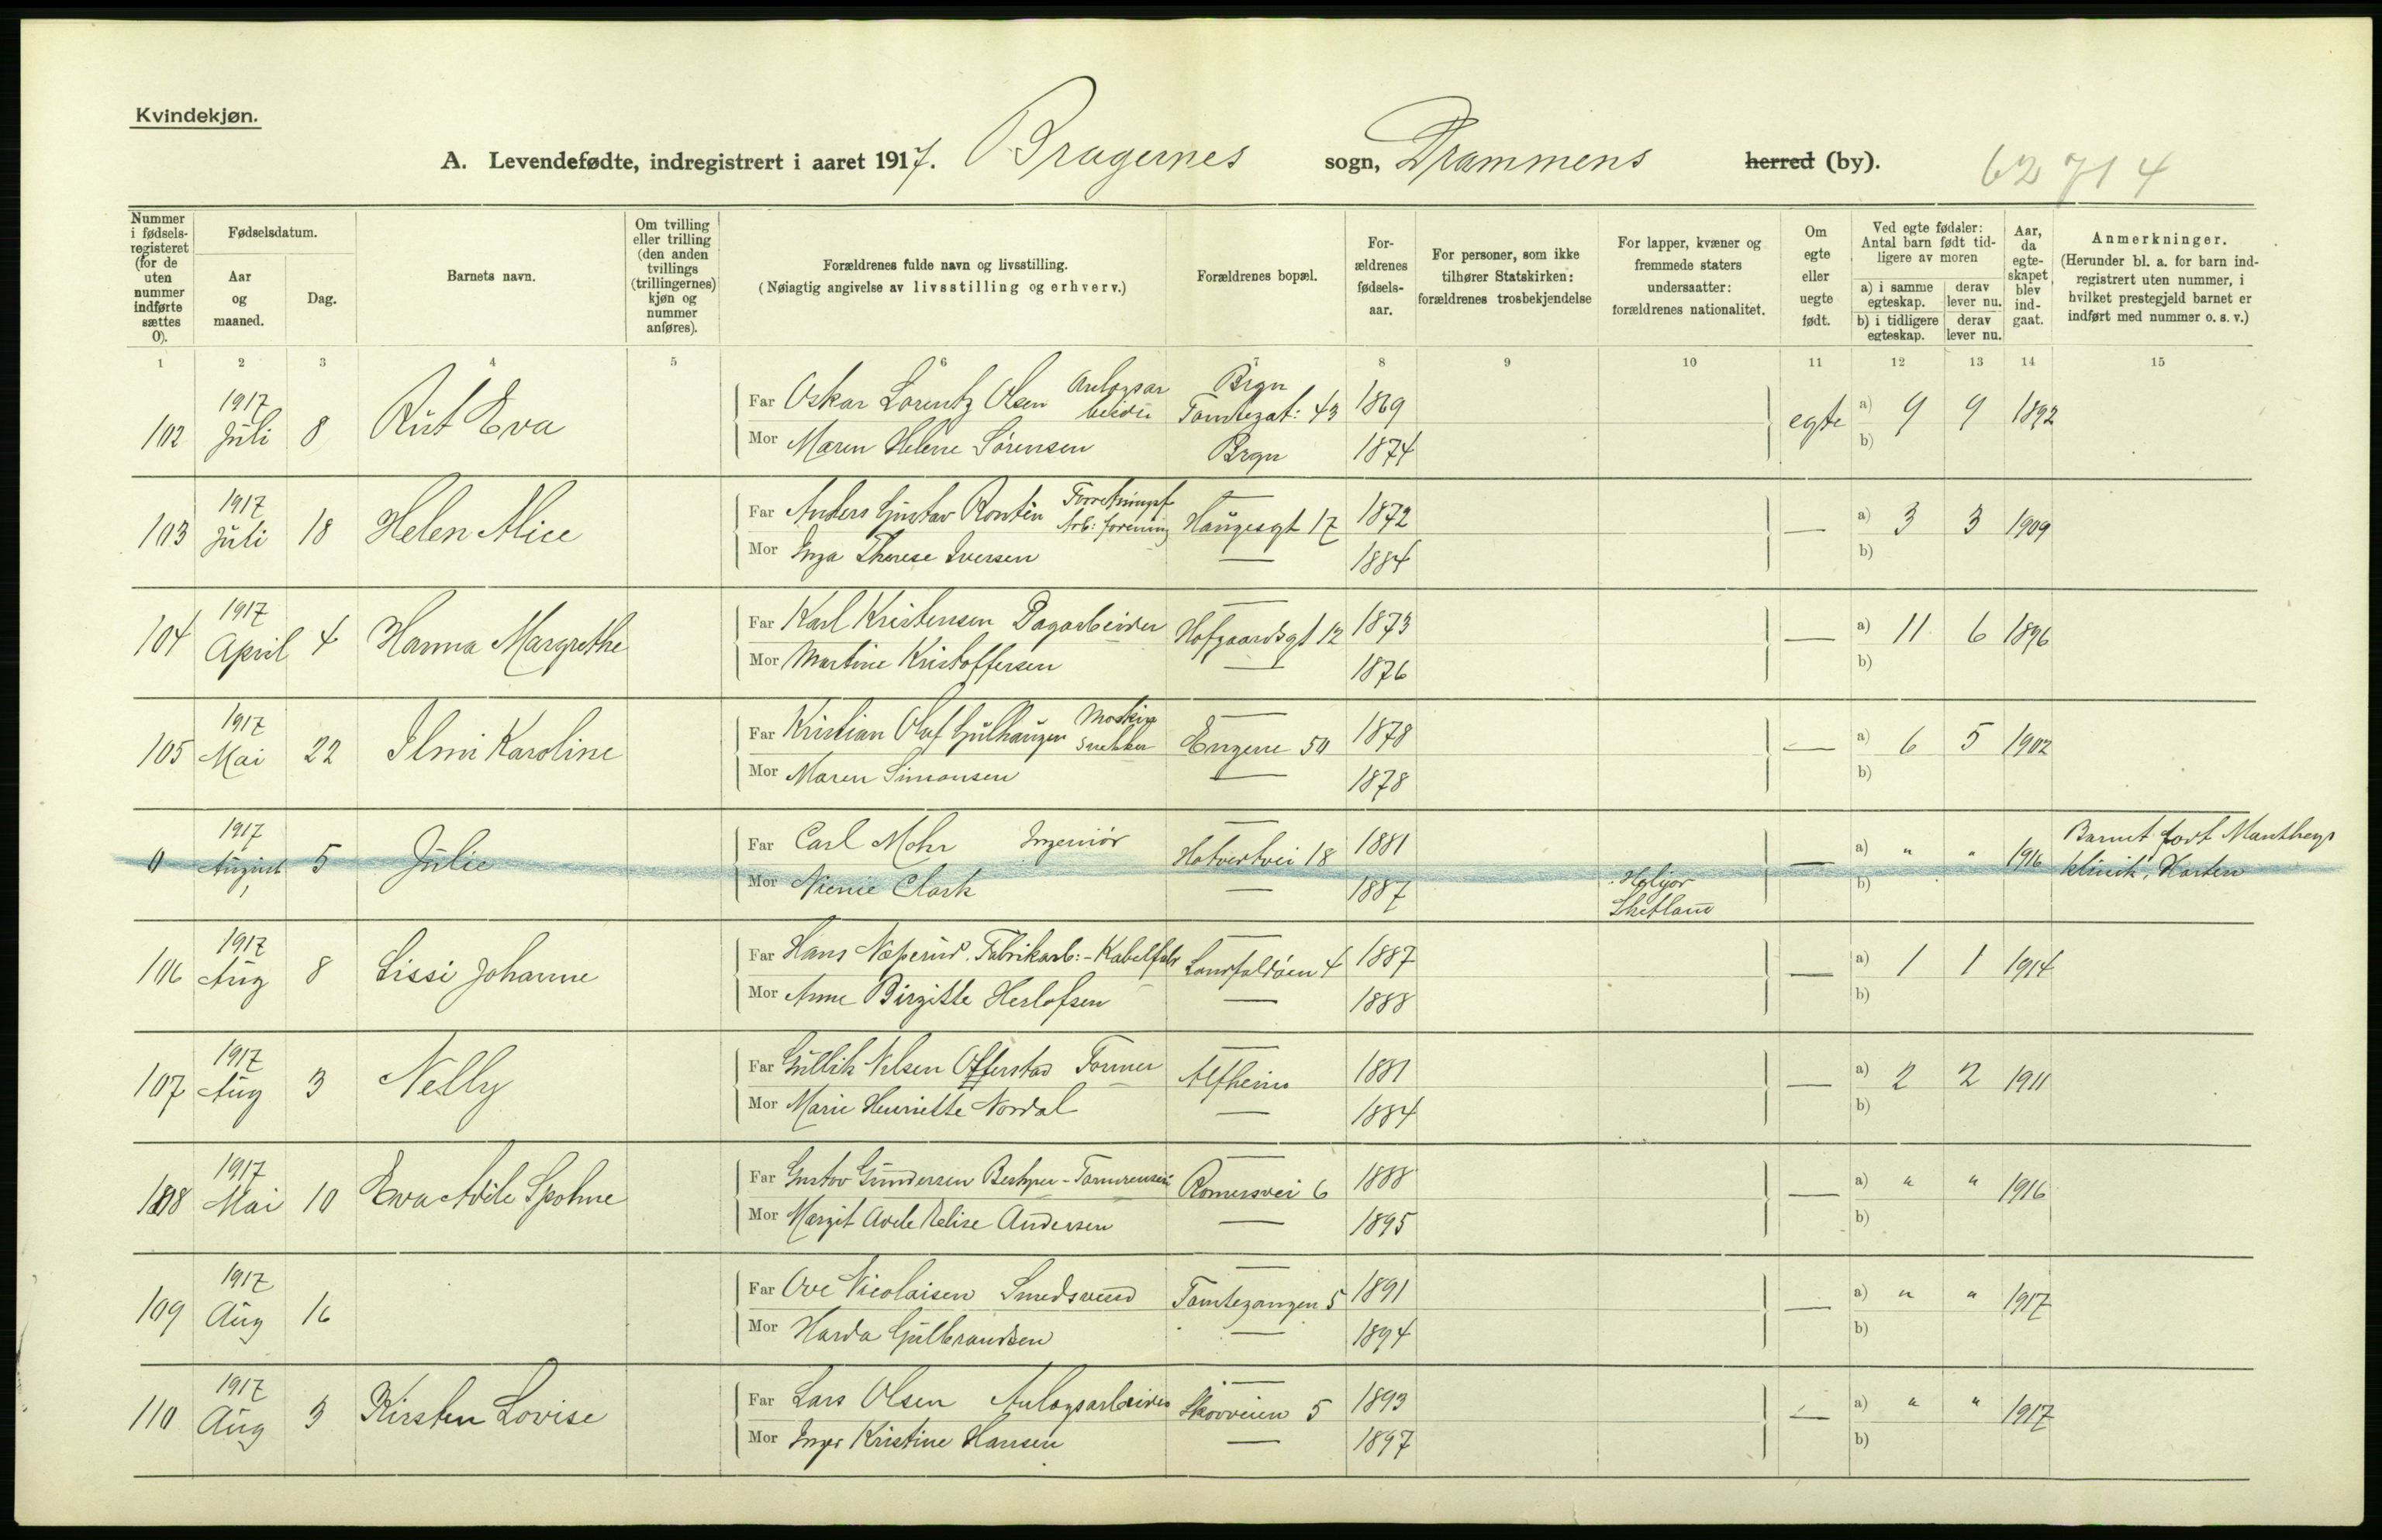 Kvindekjøn.
A. Levendefødte, indregistrert i aaret 1917. Bragernes sogn, Drammens herred (by). 62714
Nummer i fødselsregisteret (for de uten nummer indførte sættes 0).
Fødselsdatum.
Aar og maaned.
Dag.
Barnets navn.
Om tvilling eller trilling (den anden tvillings (trillingernes) kjøn og nummer anføres).
Forældrenes fulde navn og livsstilling.
(Nøiagtig angivelse av livsstilling og erhverv.)
Forældrenes bopæl.
Forældrenes fødselsaar.
For personer, som ikke tilhører Statskirken: forældrenes trosbekjendelse
For lapper, kvæner og fremmede staters undersaatter: forældrenes nationalitet.
Om egte eller uegte født.
Ved egte fødsler: Antal barn født tidligere av moren
a) i samme egteskap. derav lever nu.
b) i tidligere egteskap. derav lever nu.
Aar, da egteskapet blev indgaat.
Anmerkninger.
(Herunder bl. a. for barn indregistrert uten nummer, i hvilket prestegjeld barnet er indført med nummer o. s. v.)
1 2 3 4 5 6 7 8 9 10 11 12 13 14 15
102 1917 Juli 8 Rut Eva
Far Oskar Lorentz Olsen Anlegsarbeider Brgn Tomtegat: 43 1869 egte a) 9 9 1892
Mor Maren Helene Sørensen Brgn 1874 b)
103 1917 Juli 18 Helen Alice
Far Anders Gustav Rontén Arb: forening — Haugesgt 17 1872 — a) 3 3 1909
Mor Inga Therese Iversen — 1884 b)
104 1917 April 4 Hanna Margrethe
Far Karl Kristensen Dagarbeider — Hofgaardsgt 12 1873 — a) 11 6 1896
Mor Martine Kristoffersen — 1876 b)
105 1917 Mai 22 Ilmi Karoline
Far Kristian Olaf Gulhaugen Maskinsnekker — Engene 50 1878 — a) 6 5 1902
Mor Maren Simonsen — 1878 b)
0 1917 August 5 Julie
Far Carl Mohr Ingeniør — Hotvedtvei 18 1881 — a) " " 1916 Barnet født Mantheys klinik, Horten
Mor Clark — 1887 Shetland b)
106 1917 Aug 8 Lissi Johanne
Far Hans Næperud. Fabrikarb:-Kabelfabr — Landfaldøen 4 1887 — a) 1 1 1914
Mor Anne Birgitte Herlofsen — 1888 b)
107 1917 Aug 3 Nelly
Far Gullik Nilsen Offerstad Former — Alfheim 1881 — a) 2 2 1911
Mor Marie Henriette Nordal — 1884 b)
108 1917 Mai 10 Eva Adele Spohne
Far Gustav Gundersen — Romersvei 6 1888 — a) " " 1916
Mor Margit Adele Andersen — 1895 b)
109 1917 Aug 16
Far Ove Nicolaisen Smedsvend — Tomtegangen 5 1891 — a) " " 1917
Mor Harda Gulbrandsen — 1894 b)
110 1917 Aug 3 Kirsten Lovise
Far Lars Olsen Anlegsarbeider — Skovveien 5 1893 — a) " " 1917
Mor Inger Kristine Hansen — 1897 b)